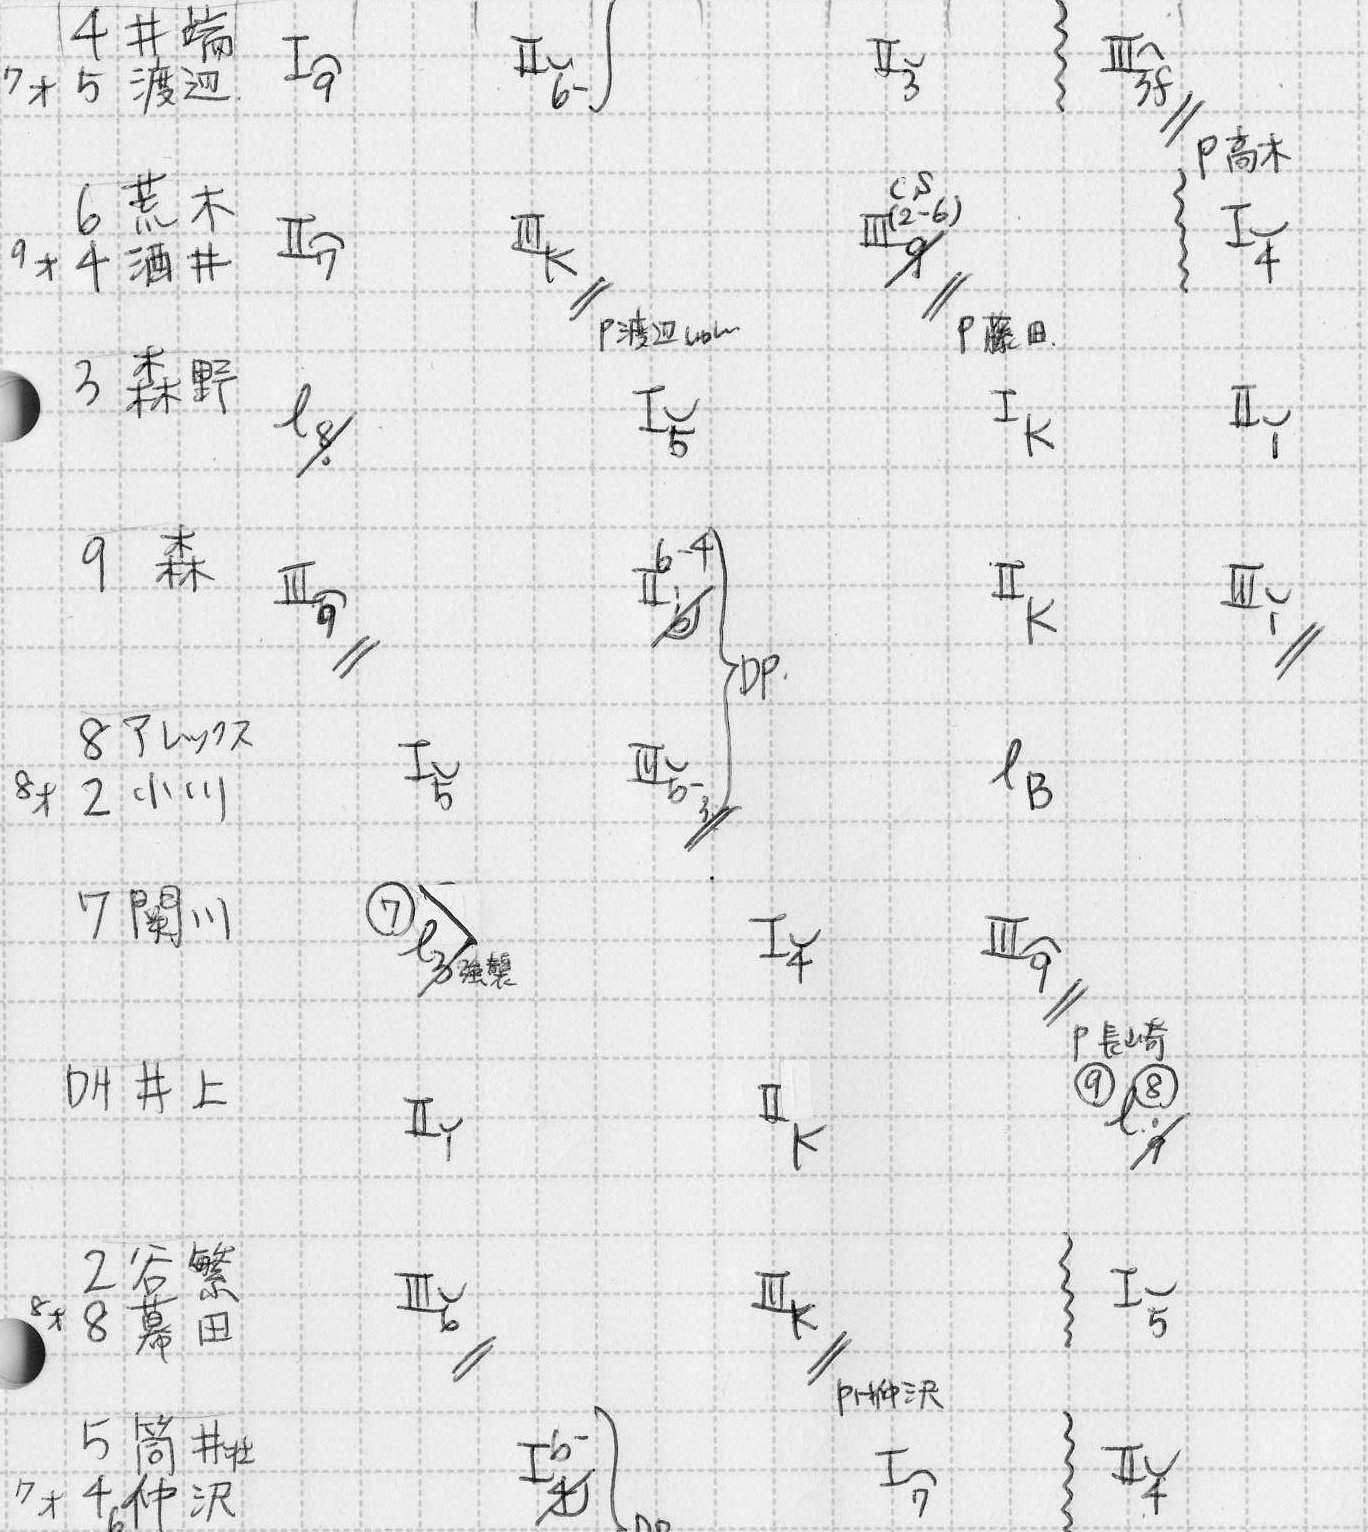 4 井端 I 9 II 6- II 3 III 3f
7オ 5 渡辺
P 高木
6 荒木 II 7 III K III CS (2-6) 9 I 4
9オ 4 酒井
P 渡辺 P 藤田
3 森野 l 8 I 5 I K II 1
9 森 III 9 II 6-4 6 II K III 1
DP.
8 アレックス I 5 III 5-3 l B
8オ 2 小川
7 関川 ⑦ l 3 強襲 I 4 III 9
P 長崎
DH 井上 II 1 II K ⑨ ⑧ l 9
2 谷繁 III 6 III K I 5
8オ 8 幕田
PH 仲沢
5 筒井壮 I 6- 4 I 7 II 4
7オ 4 仲沢
6 DP